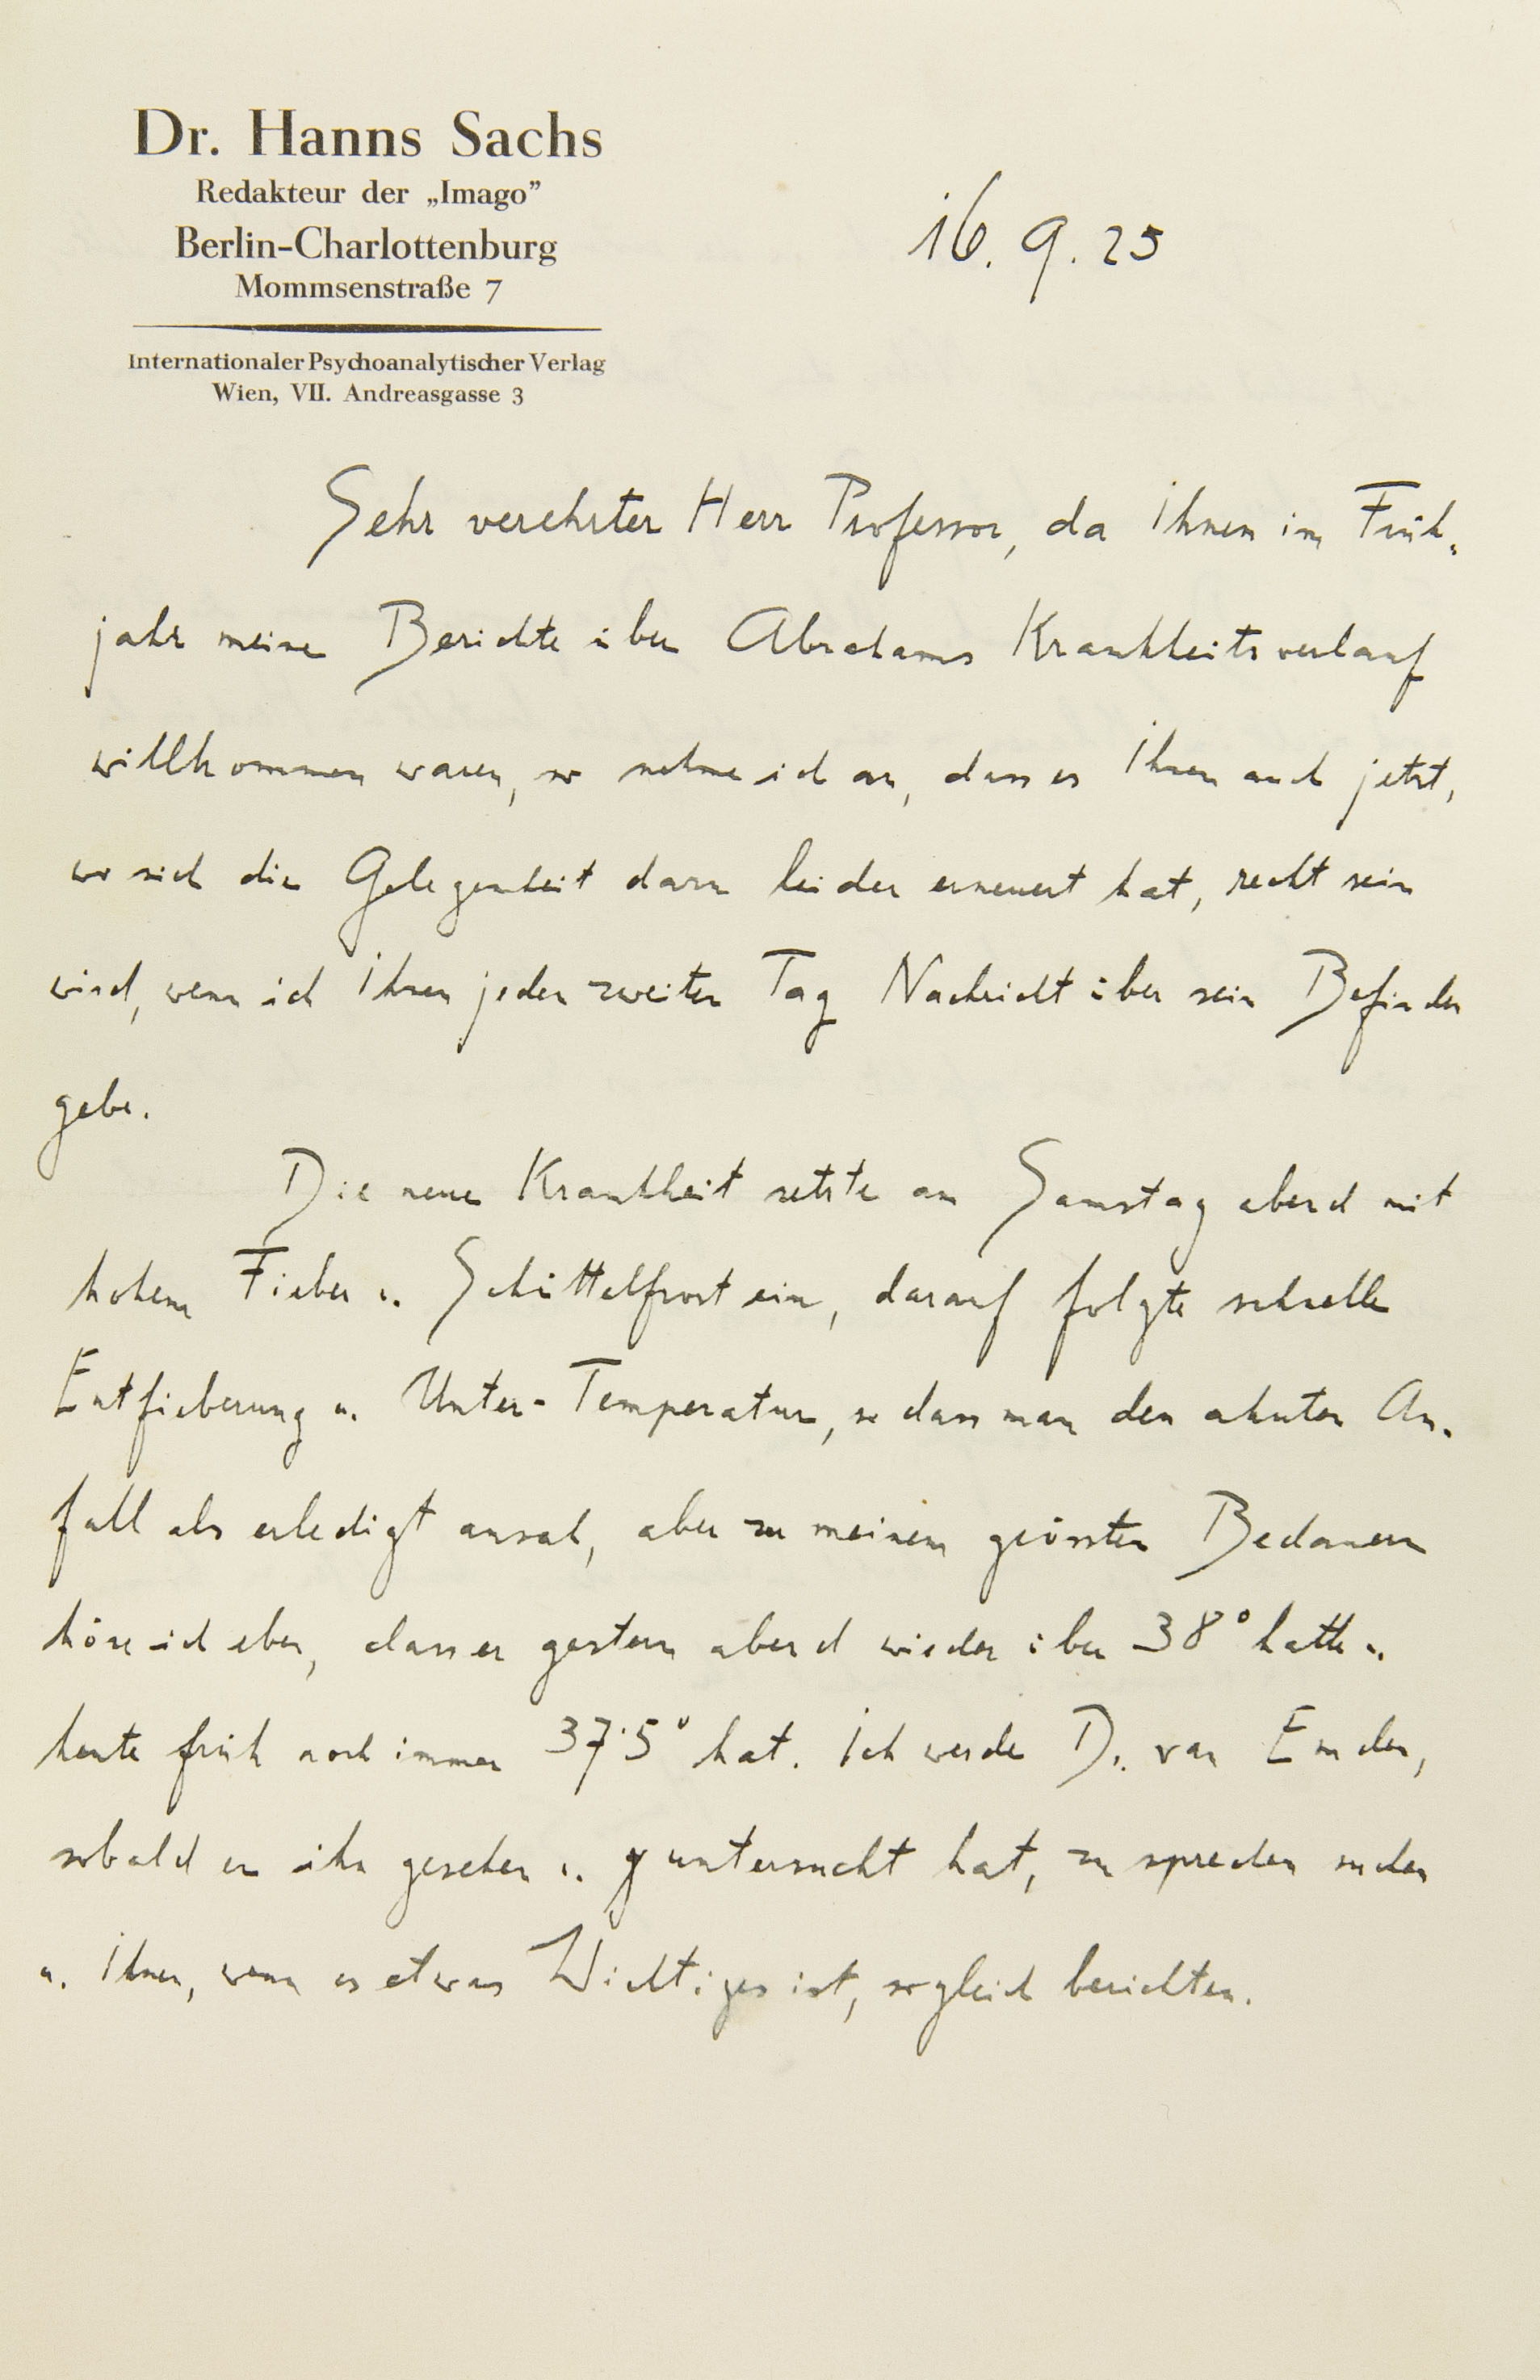 Dr. Hanns Sachs
Redakteur der „Imago”
Berlin-Charlottenburg
Mommsenstraße 7
Internationaler Psychoanalytischer Verlag
Wien, VII. Andreasgasse 3
16. 9. 25
Sehr verehrter Herr Professor, da Ihnen im Früh-
jahr meine Berichte über Abrahams Krankheitsverlauf
willkommen waren, so nehme ich an, dass es Ihnen auch jetzt,
wo sich die Gelegenheit dazu leider erneuert hat, recht sein
wird, wenn ich Ihnen jeden zweiten Tag Nachricht über sein Befinden
gebe.
Die neue Krankheit setzte am Samstag abend mit
hohem Fieber u. Schüttelfrost ein, darauf folgte schnelle
Entfieberung u. Unter-Temperatur, so dass man den akuten An-
fall als erledigt ansah, aber zu meinem grössten Bedauern
höre ich eben, dass er gestern abend wieder über 38° hatte u.
heute früh noch immer 37·5° hat. Ich werde Dr. van Emden,
sobald er ihn gesehen u. untersucht hat, zu sprechen suchen
u. Ihnen, wenn es etwas Wichtiges ist, sogleich berichten.